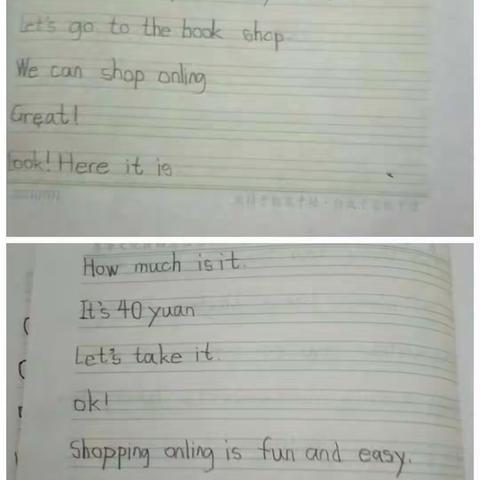 Let's go to the book shop
We can shop onling
Great!
look! Here it is
How much is it.
It's 40 yuan
Let's take it.
ok!
Shopping onling is fun and easy.